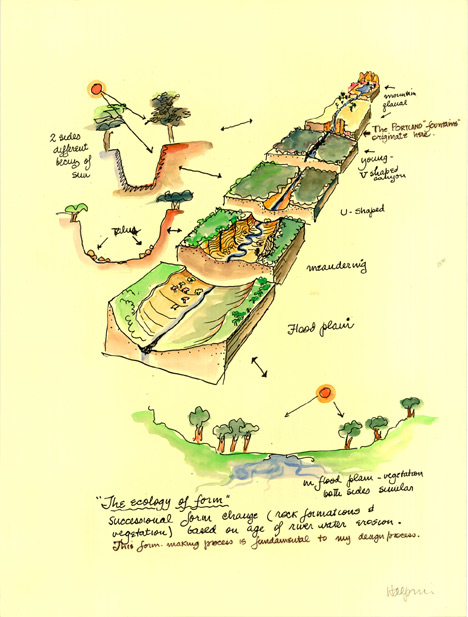 mountain
glacial
The PORTLAND "fountains"
originate here.
young -
V shaped
canyon
U - Shaped
meandering
Flood plain
2 sides
different
becus of
sun
Talus
in flood plain - vegetation
both sides similar
"The ecology of form"
Successional form change (rock formations &
vegetation) based on age of river water erosion.
This form-making process is fundamental to my design process.
Halprin